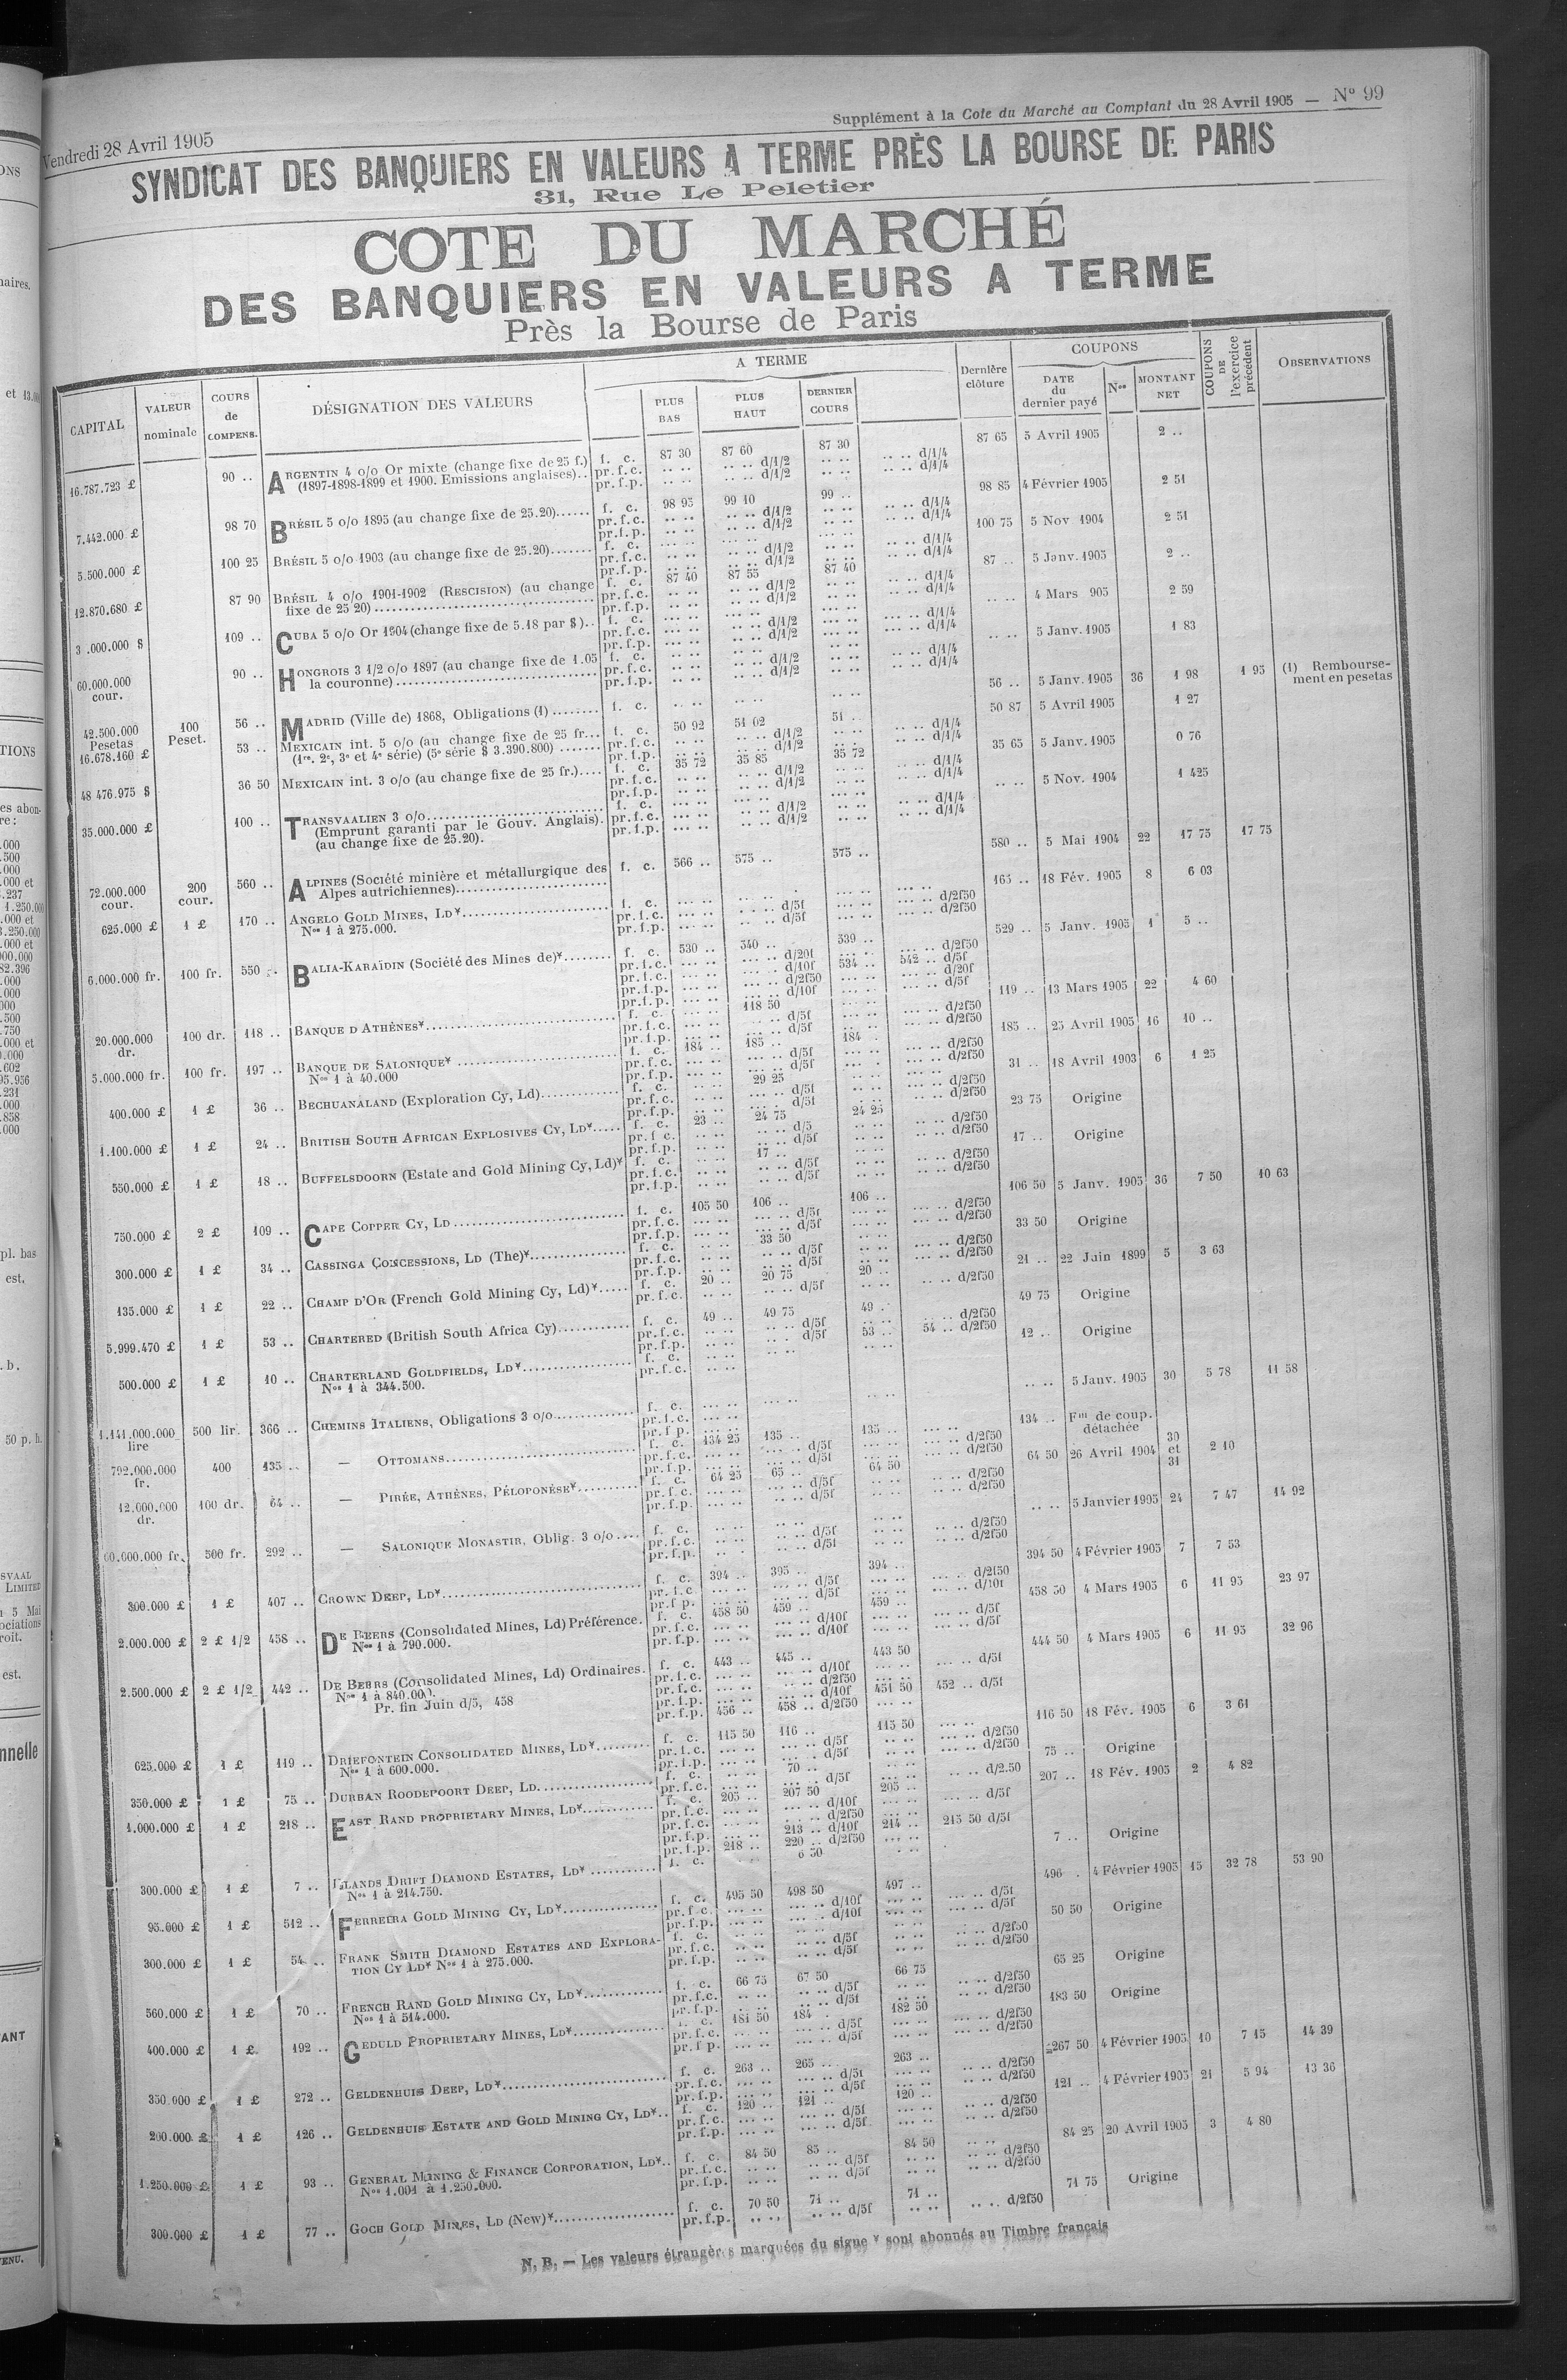 Vendredi 28 Avril 1905
Supplément à la Cote du Marché au Comptant du 28 Avril 1905 — N° 99
SYNDICAT DES BANQUIERS EN VALEURS A TERME PRÈS LA BOURSE DE PARIS
31, Rue Le Peletier
COTE DU MARCHÉ
DES BANQUIERS EN VALEURS A TERME
Près la Bourse de Paris
CAPITAL | VALEUR nominale | COURS de COMPENS. | DÉSIGNATION DES VALEURS | A TERME | PLUS BAS | PLUS HAUT | DERNIER COURS | Dernière clôture | COUPONS | DATE du dernier payé | Nos | MONTANT NET | COUPONS DE l'exercice précédent | OBSERVATIONS
16.787.723 £ 90 .. ARGENTIN 4 o/o Or mixte (change fixe de 25 f.) f. c. 87 30 87 60 87 30 87 65 5 Avril 1905 2 ..
(1897-1898-1899 et 1900. Emissions anglaises).. pr.f.c. .. .. .. .. d/1/2 .. .. .. .. d/1/4
pr.f.p. .. .. .. .. d/1/2 .. .. .. .. d/1/4
7.442.000 £ 98 70 BRÉSIL 5 o/o 1895 (au change fixe de 25.20)...... f. c. 98 95 99 10 99 .. 98 85 4 Février 1905 2 51
5.500.000 £ 100 25 BRÉSIL 5 o/o 1903 (au change fixe de 25.20)....... f. c. 100 75 5 Nov 1904 2 51
12.870.680 £ 87 90 BRÉSIL 4 o/o 1901-1902 (RESCISION) (au change f. c. 87 40 87 55 87 40 87 .. 5 Janv. 1905 2 ..
fixe de 25 20)
3 .000.000 $ 109 .. CUBA 5 o/o Or 1904 (change fixe de 5.18 par $).. f. c. .. .. 4 Mars 905 2 59
60.000.000 cour. 90 .. HONGROIS 3 1/2 o/o 1897 (au change fixe de 1.05 f. c. .. .. 5 Janv. 1905 1 83
la couronne)
42.500.000 Pesetas 100 Peset. 56 .. MADRID (Ville de) 1868, Obligations (1) ........ f. c. 56 .. 5 Janv. 1905 36 1 98 1 95 (1) Rembourse-
ment en pesetas
16.678.160 £ 53 .. MEXICAIN int. 5 o/o (au change fixe de 25 fr... f. c. 50 92 51 02 51 .. 50 87 5 Avril 1905 1 27
(1re, 2e, 3e et 4e série) (5e série $ 3.390.800) .......
48 476.975 $ 36 50 MEXICAIN int. 3 o/o (au change fixe de 25 fr.).... f. c. 35 72 35 85 35 72 35 65 5 Janv. 1905 0 76
35.000.000 £ 100 .. TRANSVAALIEN 3 o/o f. c. .. .. 5 Nov. 1904 1 425
(Emprunt garanti par le Gouv. Anglais).
(au change fixe de 25.20).
72.000.000 cour. 200 cour. 560 .. ALPINES (Société minière et métallurgique des f. c. 566 .. 575 .. 575 .. 580 .. 5 Mai 1904 22 17 75 17 75
Alpes autrichiennes)
625.000 £ 1 £ 170 .. ANGELO GOLD MINES, LD¥ f. c. 165 .. 18 Fév. 1905 8 6 03
Nos 1 à 275.000.
6.000.000 fr. 100 fr. 550 .. BALIA-KARAÏDIN (Société des Mines de)¥ f. c. 530 .. 540 .. 539 .. 529 .. 5 Janv. 1905 1 5 ..
pr.f.c. d/10f 534 .. 542 .. d/5f
20.000.000 dr. 100 dr. 118 .. BANQUE D'ATHÈNES¥ f. c. 118 50 119 .. 13 Mars 1905 22 4 60
5.000.000 fr. 100 fr. 197 .. BANQUE DE SALONIQUE¥ f. c. 184 .. 185 .. 184 . 185 .. 25 Avril 1905 16 10 ..
Nos 1 à 40.000
400.000 £ 1 £ 36 .. BECHUANALAND (Exploration Cy, Ld) f. c. 29 25 31 .. 18 Avril 1903 6 1 25
1.100.000 £ 1 £ 24 .. BRITISH SOUTH AFRICAN EXPLOSIVES CY, LD¥ f. c. 23 .. 24 75 24 25 23 75 Origine
550.000 £ 1 £ 18 .. BUFFELSDOORN (Estate and Gold Mining Cy, Ld)¥ f. c. 17 .. 17 .. Origine
750.000 £ 2 £ 109 .. CAPE COPPER CY, LD f. c. 105 50 106 .. 106 .. 106 50 5 Janv. 1905 36 7 50 10 63
300.000 £ 1 £ 34 .. CASSINGA CONCESSIONS, LD (The)¥ f. c. 33 50 33 50 Origine
135.000 £ 1 £ 22 .. CHAMP D'OR (French Gold Mining Cy, Ld)¥ f. c. 20 .. 20 75 20 .. 21 .. 22 Juin 1899 5 3 63
5.999.470 £ 1 £ 53 .. CHARTERED (British South Africa Cy) f. c. 49 .. 49 75 49 .. 49 75 Origine
pr.f.p. d/5f 53 .. 54 .. d/2f50
500.000 £ 1 £ 10 .. CHARTERLAND GOLDFIELDS, LD¥ f. c. 12 .. Origine
Nos 1 à 344.500.
1.141.000.000 lire 500 lir. 366 .. CHEMINS ITALIENS, Obligations 3 o/o f. c. .. .. 5 Janv. 1905 30 5 78 11 58
792.000.000 fr. 400 135 .. — OTTOMANS f. c. 134 25 135 .. 135 .. 134 .. Flle de coup. détachée
12.000.000 dr. 100 dr. 64 .. — PIRÉE, ATHÈNES, PÉLOPONÈSE¥ f. c. 64 25 65 .. 64 50 64 50 26 Avril 1904 30 et 31 2 10
60.000.000 fr. 500 fr. 292 .. — SALONIQUE MONASTIR, Oblig. 3 o/o f. c. .. .. 5 Janvier 1905 24 7 47 14 92
300.000 £ 1 £ 407 .. CROWN DEEP, LD¥ f. c. 394 .. 395 .. 394 .. 394 50 4 Février 1905 7 7 53
2.000.000 £ 2 £ 1/2 458 .. DE BEERS (Consolidated Mines, Ld) Préférence. f. c. 458 50 459 .. 459 .. 458 50 4 Mars 1905 6 11 95 23 97
Nos 1 à 790.000.
2.500.000 £ 2 £ 1/2 442 .. DE BEERS (Consolidated Mines, Ld) Ordinaires. f. c. 443 .. 445 .. 443 50 444 50 4 Mars 1905 6 11 95 32 96
Nos 1 à 840.000. pr.f.p. d/10f 451 50 452 .. d/5f
Pr. fin Juin d/5, 458 pr.f.p. 456 .. 458 .. d/2f50
625.000 £ 1 £ 119 .. DRIEFONTEIN CONSOLIDATED MINES, LD¥ f. c. 115 50 116 .. 115 50 116 50 18 Fév. 1905 6 3 61
Nos 1 à 600.000.
350.000 £ 1 £ 75 .. DURBAN ROODEPOORT DEEP, LD f. c. 70 .. 75 .. Origine
1.000.000 £ 1 £ 218 .. EAST RAND PROPRIETARY MINES, LD¥ f. c. 205 .. 207 50 205 .. 207 .. 18 Fév. 1905 2 4 82
pr.f.p. 213 .. d/10f 214 .. 215 50 d/5f
pr.f.p. 218 .. 220 .. d/2f50
300.000 £ 1 £ 7 .. ELANDS DRIFT DIAMOND ESTATES, LD¥ f. c. 6 50 7 .. Origine
Nos 1 à 214.750.
95.000 £ 1 £ 512 .. FERREIRA GOLD MINING CY, LD¥ f. c. 495 50 498 50 497 .. 496 . 4 Février 1905 15 32 78 53 90
300.000 £ 1 £ 54 .. FRANK SMITH DIAMOND ESTATES AND EXPLORA- f. c. 50 50 Origine
TION CY LD¥ Nos 1 à 275.000.
560.000 £ 1 £ 70 .. FRENCH RAND GOLD MINING CY, LD¥ f. c. 66 75 67 50 66 75 65 25 Origine
Nos 1 à 514.000.
400.000 £ 1 £ 192 .. GEDULD PROPRIETARY MINES, LD¥ f. c. 181 50 184 . 182 50 183 50 Origine
350.000 £ 1 £ 272 .. GELDENHUIS DEEP, LD¥ f. c. 263 .. 265 .. 263 .. 267 50 4 Février 1905 10 7 15 14 39
200.000 £ 1 £ 126 .. GELDENHUIS ESTATE AND GOLD MINING CY, LD¥ f. c. 120 .. 121 .. 120 .. 121 .. 4 Février 1905 21 5 94 13 36
1.250.000 £ 1 £ 93 .. GENERAL MINING & FINANCE CORPORATION, LD¥ f. c. 84 50 85 .. 84 50 84 25 20 Avril 1905 3 4 80
Nos 1.001 à 1.250.000.
300.000 £ 1 £ 77 .. GOCH GOLD MINES, LD (New)¥ f. c. 70 50 71 .. 71 .. 71 75 Origine
pr.f.p. .. .. .. .. d/5f .. .. .. .. d/2f50
N. B. — Les valeurs étrangères marquées du signe ¥ sont abonnés au Timbre français